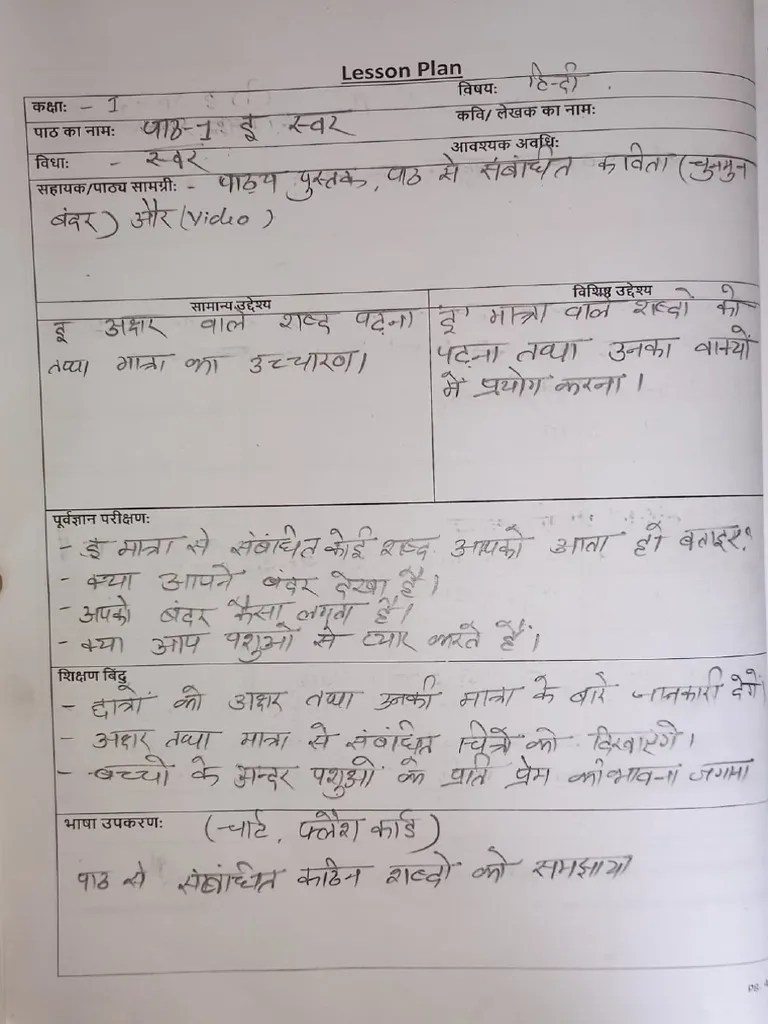 Lesson Plan
कक्षा: - I विषय: हिन्दी .
पाठ का नाम: पाठ-1 इ स्वर कवि/ लेखक का नाम:
विधा: - स्वर आवश्यक अवधि:
सहायक/पाठ्य सामग्री: - पाठ्य पुस्तक, पाठ से संबंधित कविता (चुनमुन
बंदर) और (Video)
सामान्य उद्देश्य
इ अक्षर वाले शब्द पढ़ना
तथा मात्रा का उच्चारण।
विशिष्ठ उद्देश्य
इ मात्रा वाले शब्दो को
पढ़ना तथा उनका वाक्यों
मे प्रयोग करना।
पूर्वज्ञान परीक्षण:
- इ मात्रा से संबंधित कोई शब्द आपको आता हो बताइए?
- क्या आपने बंदर देखा है।
- अपको बंदर कैसा लगता है।
- क्या आप पशुओ से प्यार करते हैं।
शिक्षण बिंदू
- छात्रों को अक्षर तथा उनकी मात्रा के बारे जानकारी देगें।
- अक्षर तथा मात्रा से संबंधित चित्रों को दिखाएगे।
- बच्चो के अन्दर पशुओ के प्रति प्रेम की भावना जगाना
भाषा उपकरण: (चार्ट, फ्लैश कार्ड)
पाठ से संबंधित कठिन शब्दो को समझाया